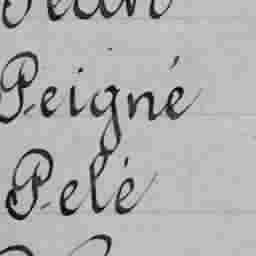 Peigné
Pelé